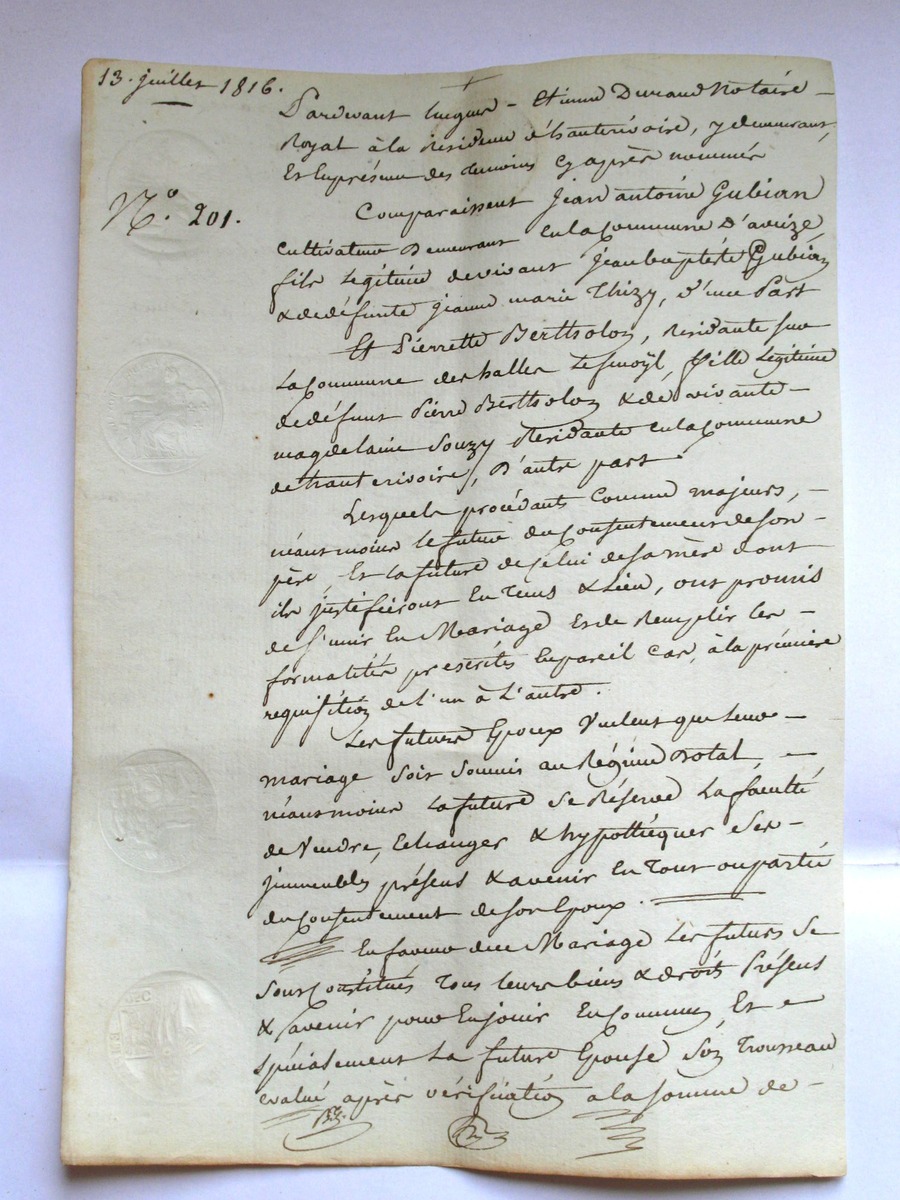 13. juillet 1816.
N.º 201.
Pardevant Me Etienne Durand Notaire
Royal à la Résidence d'hauterivoire, y demeurant,
Et En présence des témoins Cy après nommés
Comparaissent Jean antoine Gubian
Cultivateur Demeurant En la Commune D'aveize,
fils Légitime de vivant Jean baptiste Gubian
& de défunte jeanne marie Thizy, d'une Part
Et Pierrette Bertholon, Résidante sur
La Commune des halles Le fenoÿl, fille Légitime
de défunt Pierre Bertholon & de vivante
magdelaine Souzy Résidante En la Commune
de hauterivoire, D'autre part.
Lesquels procédants Comme majeurs,
néanmoins le future du Consentement de son
père, Et la future de Celui de sa mère dont
ils justifieront En Tems & Lieu, ont promis
de s'unir En Mariage Et de Remplir les
formalités prescrites En pareil Cas, à la première
requisition de l'un à L'autre.
Les futurs Epoux Veulent que Leur
mariage Soit Soumis au Régime Dotal,
néanmoins La future Se Réserve La faculté
de Vendre, Echanger & hypothéquer Ses
jmmeubles présens & avenir En Tout ou partie
du Consentement de son Epoux.
En faveur du Mariage Les futurs Se
Sont Constitués Tous leurs biens & droits Présens
& avenir pour En jouir En Commun, Et
spécialement La future Epouse Son Trousseau
évalué après vérification a la somme de